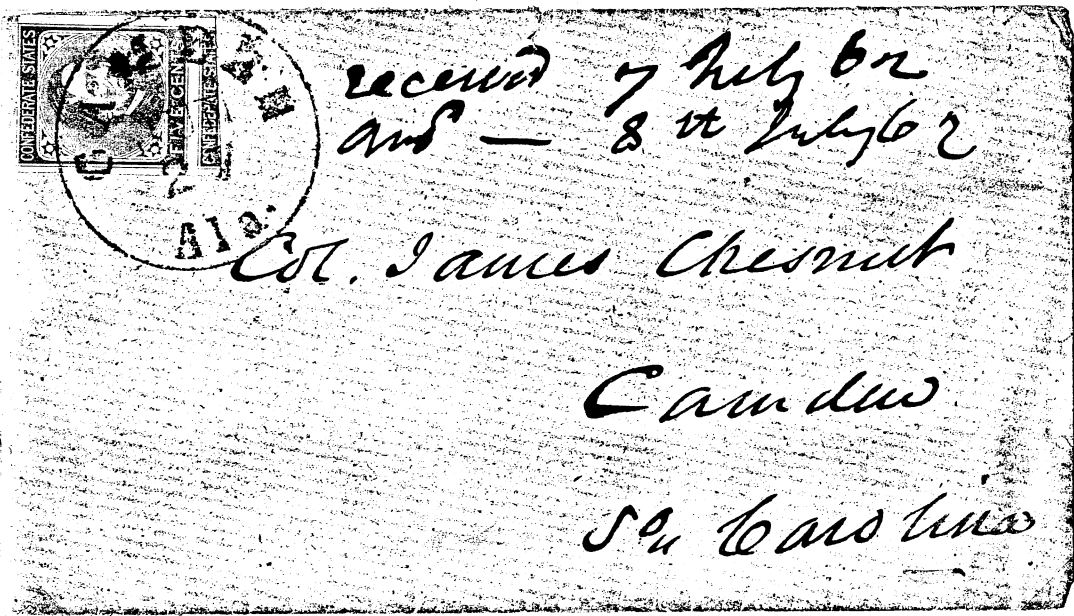 CONFEDERATE STATES
FIVE CENTS
Ala.
received 7 July 62
ansd — 8th July 62
Col. James Chesnut
Camden
So. Carolina